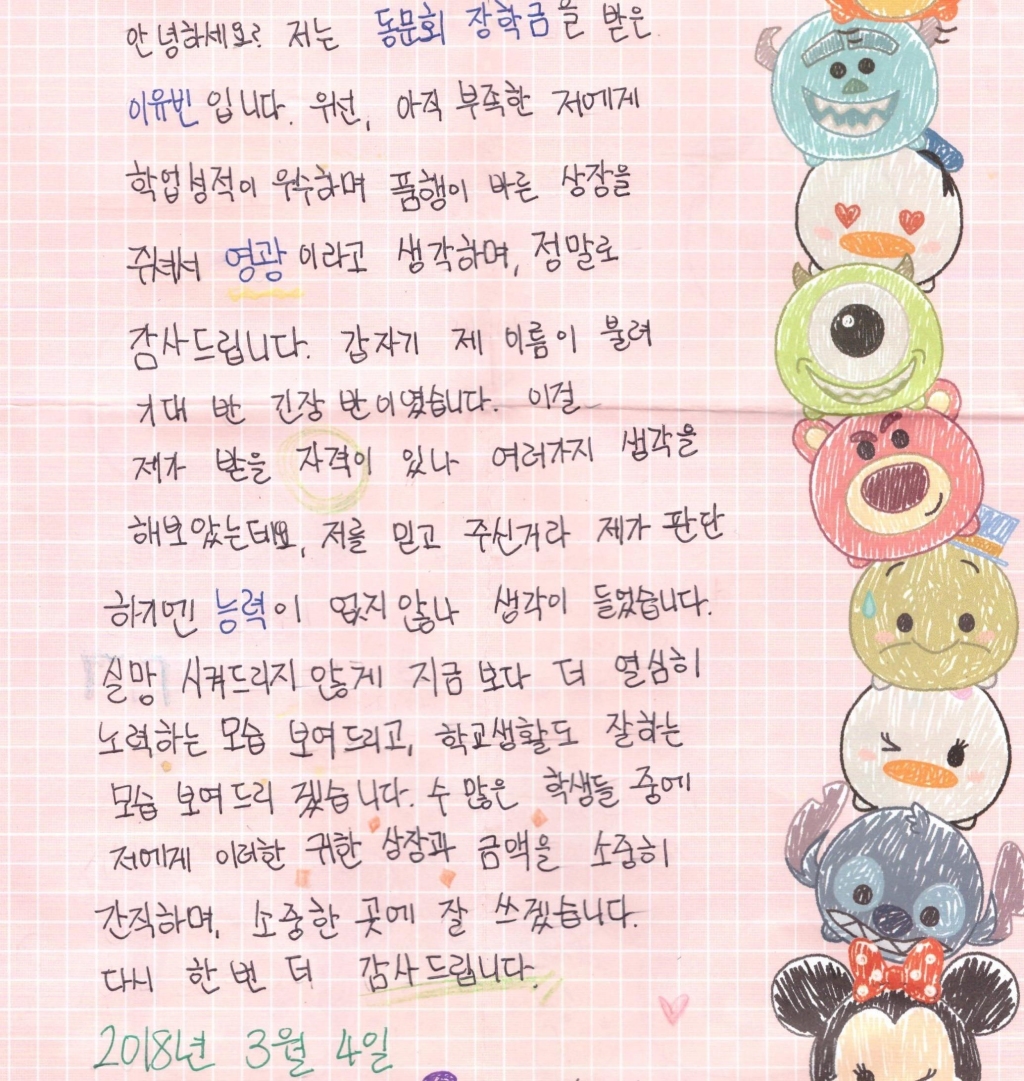 안녕하세요? 저는 동문회 장학금을 받은
이유빈 입니다. 우선, 아직 부족한 저에게
학업성적이 우수하며 품행이 바른 상장을
줘서 영광이라고 생각하며, 정말로
감사드립니다. 갑자기 제 이름이 불려
기대 반 긴장 반이였습니다. 이걸
제가 받을 자격이 있나 여러가지 생각을
해보았는데요, 저를 믿고 주신거라 제가 판단
하기엔 능력이 없지않나 생각이 들었습니다.
실망 시켜드리지 않게 지금 보다 더 열심히
노력하는 모습 보여드리고, 학교생활도 잘하는
모습 보여드리 겠습니다. 수 많은 학생들 중에
저에게 이러한 귀한 상장과 금액을 소중히
간직하며, 소중한 곳에 잘 쓰겠습니다.
다시 한 번 더 감사드립니다.
2018년 3월 4일